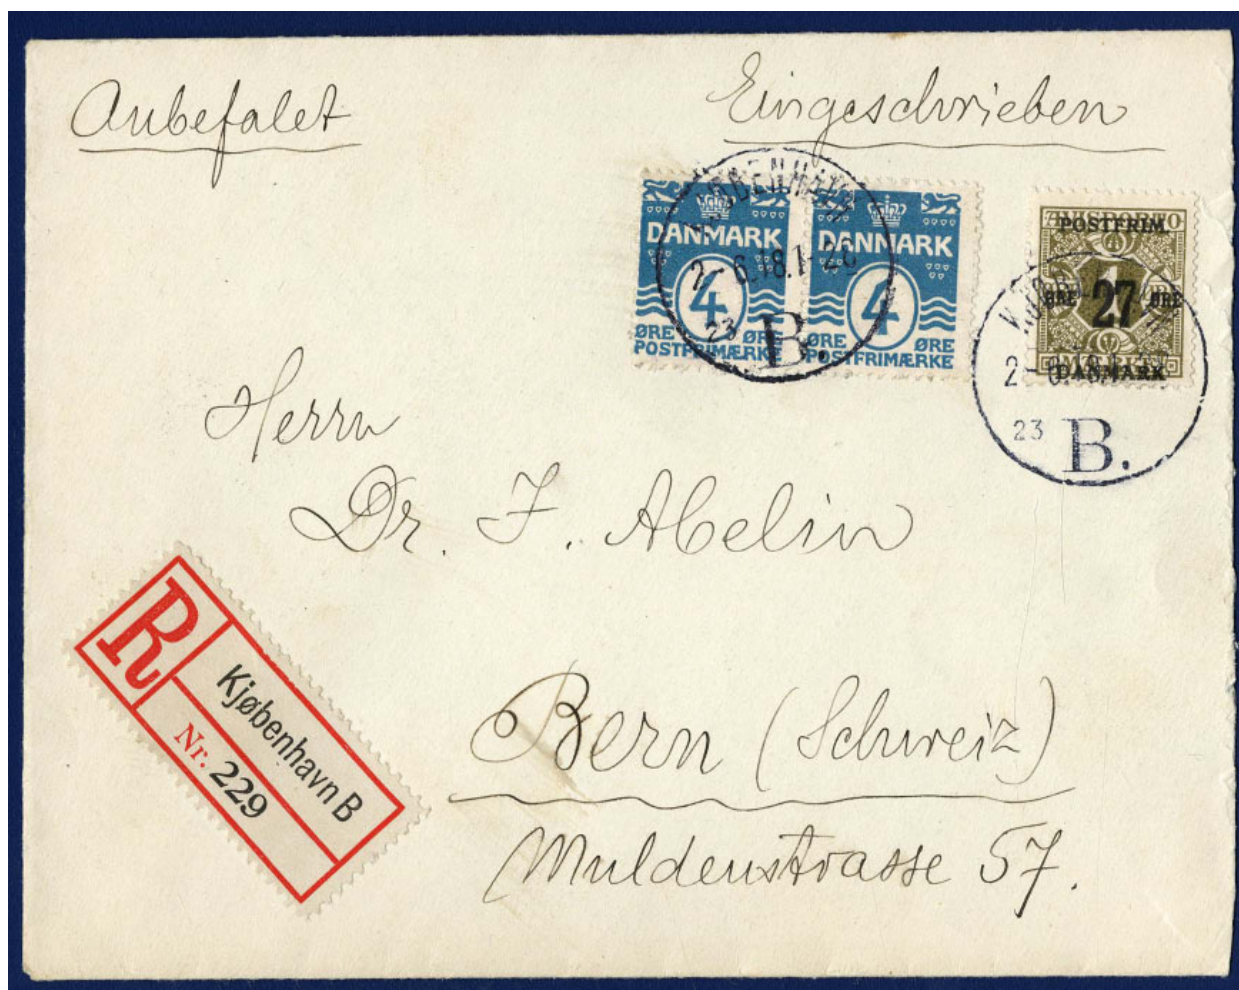 Anbefalet
Eingeschrieben
DANMARK
4
ØRE ØRE
POSTFRIMÆRKE
DANMARK
4
ØRE ØRE
POSTFRIMÆRKE
KJØBENHAVN
2-6.18.1-2E
23 B.
POSTFRIM.
ØRE 27 ØRE
DANMARK
1
2-6.18.1
23 B.
Herrn
Dr. J. Abelin
Bern (Schweiz)
Muldenstrasse 57.
R
Kjøbenhavn B
Nr. 229